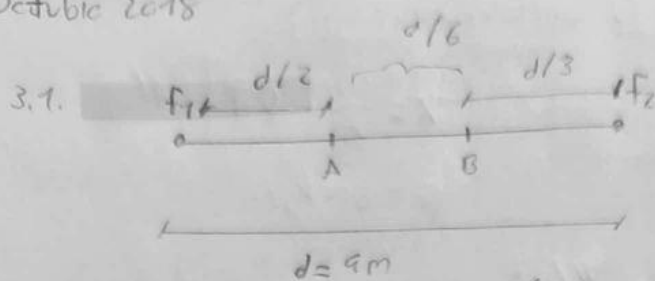 Octubre 2018
d/6
3.1. f1 d/2 d/3 f2
A B
d = 9m